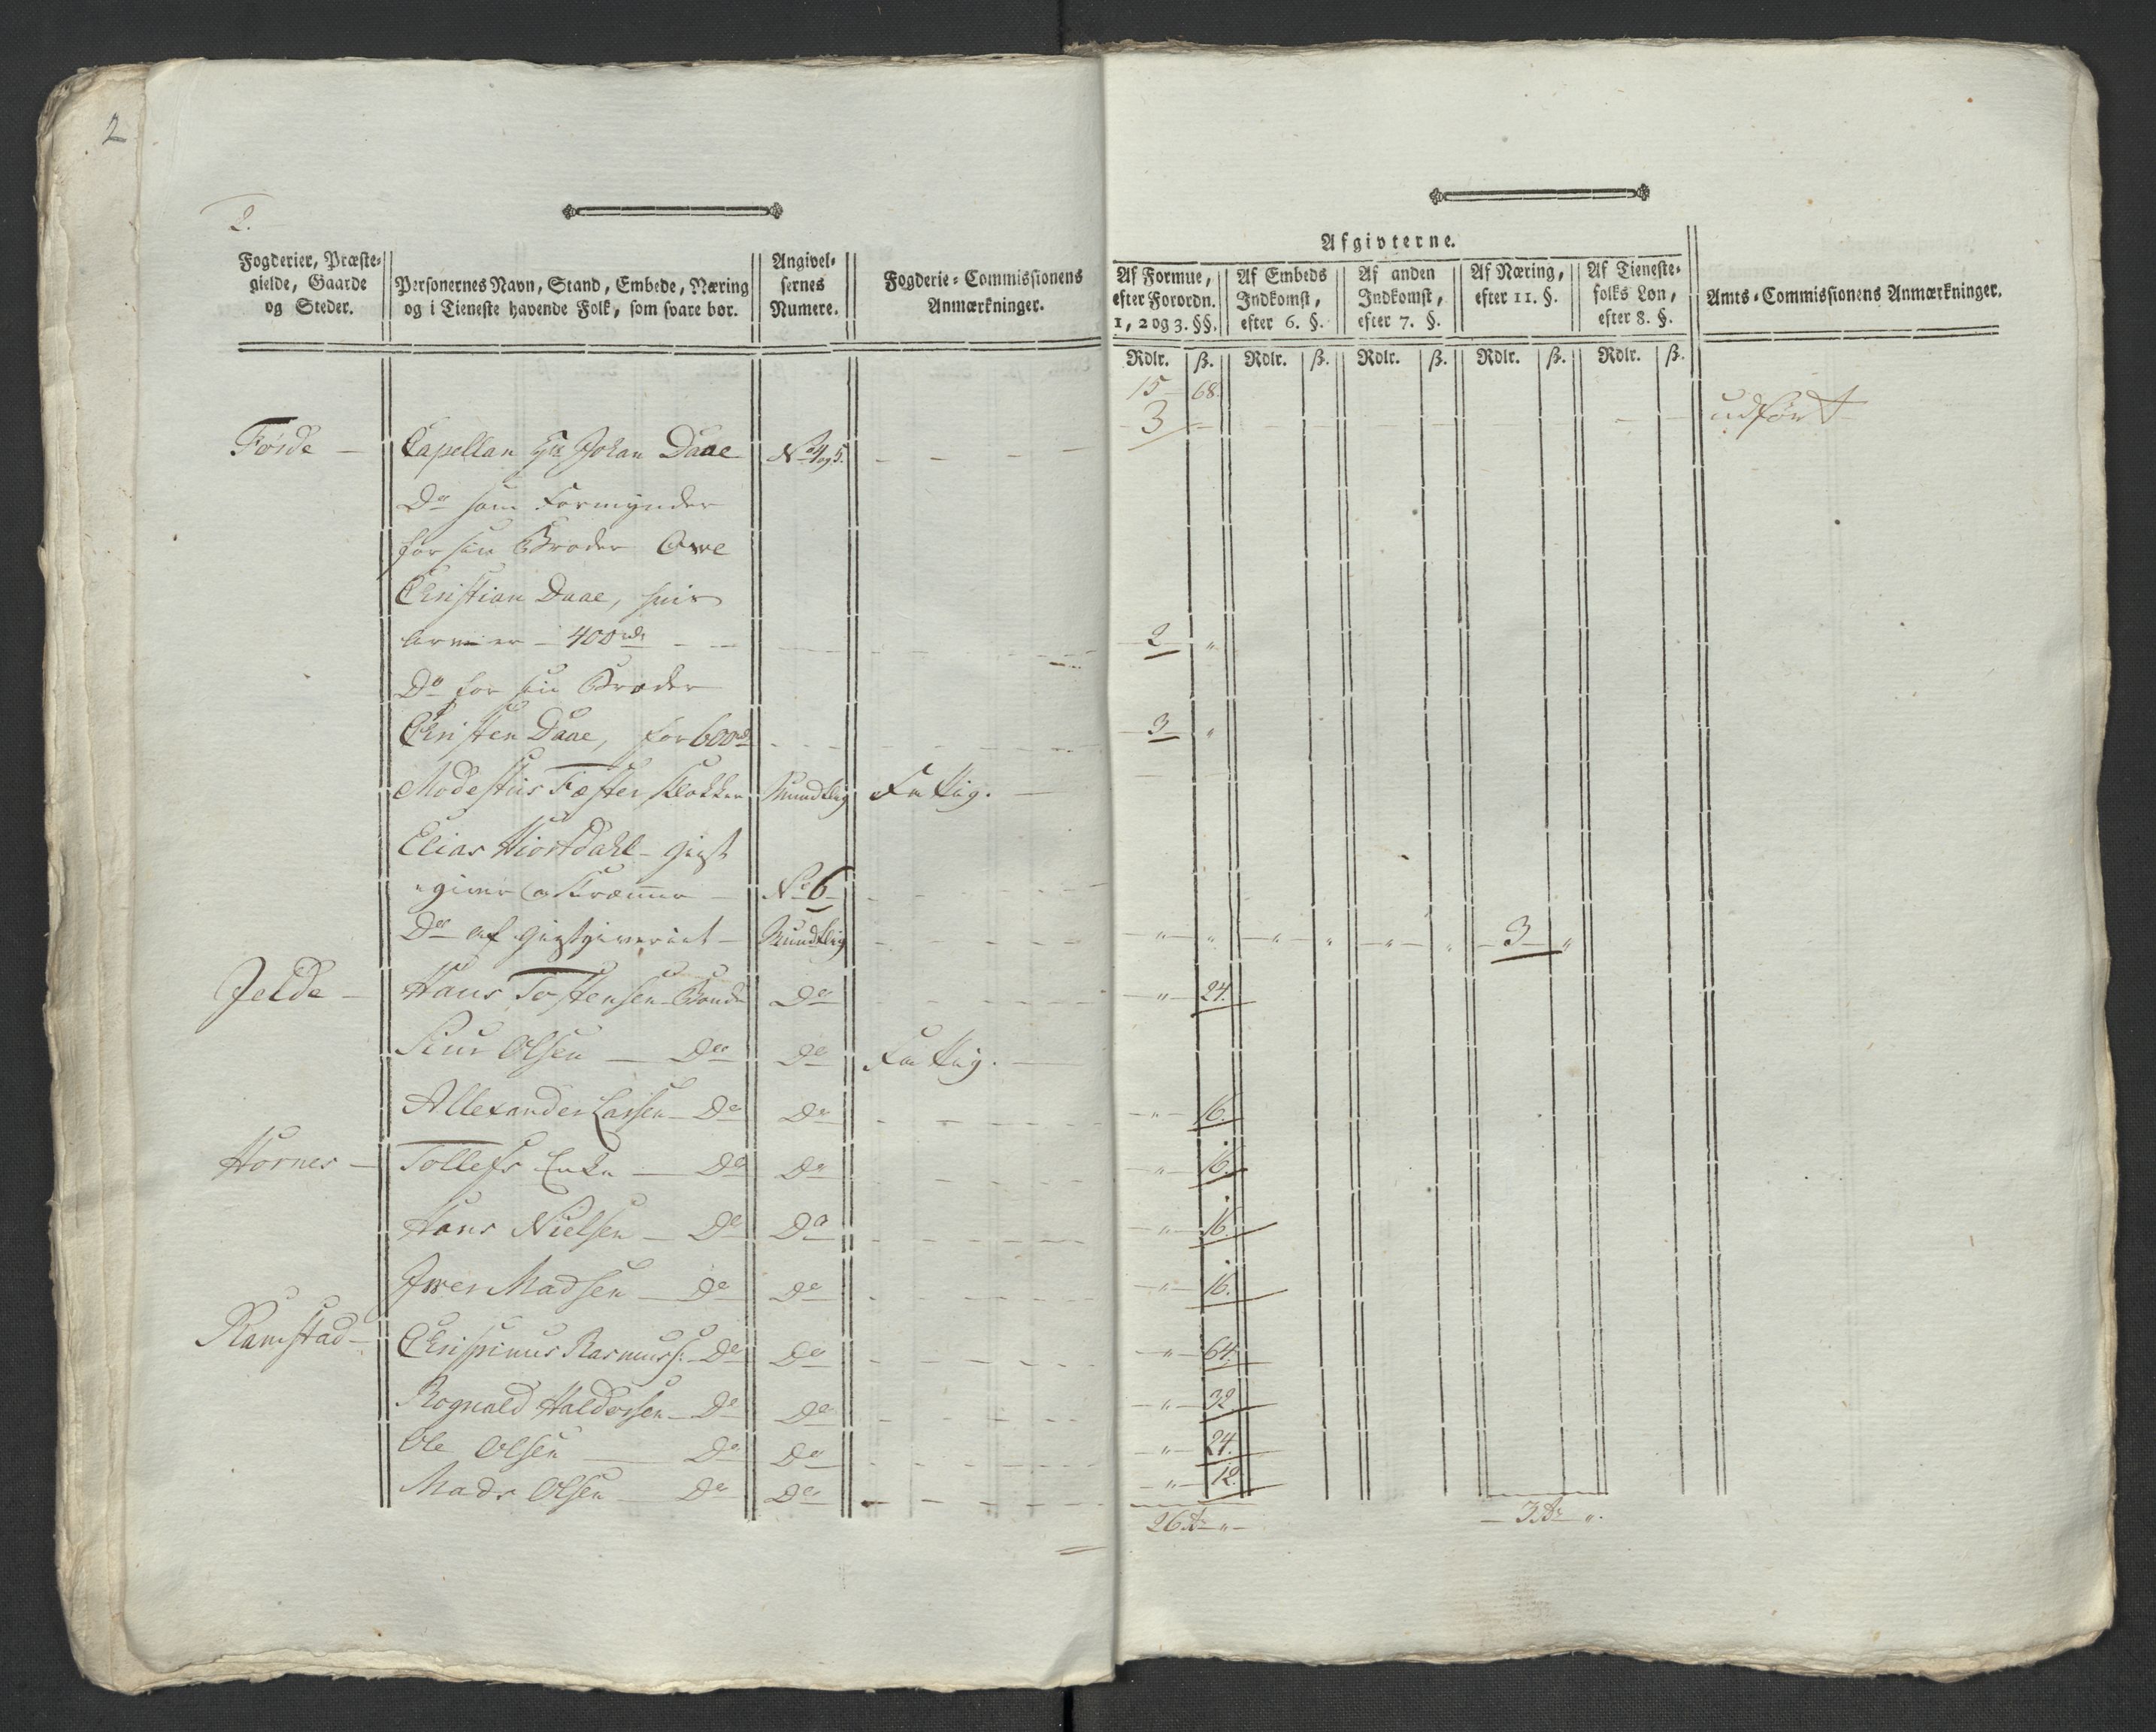 2
2.
Fogderier, Præste-
gielde, Gaarde
og Steder.
Personernes Navn, Stand, Embede, Næring
og i Tieneste havende Folk, som svare bør.
Angivel-
sernes
Numere.
Fogderie-Commissionens
Anmærkninger.
Afgivterne.
Af Formue,
efter Forordn.
1, 2 og 3. §§.
Af Embeds
Indkomst,
efter 6. §.
Af anden
Indkomst,
efter 7. §.
Af Næring,
efter 11. §.
Af Tieneste-
folks Løn,
efter 8. §.
Amts-Commissionens Anmærkninger.
Rdlr. ß. Rdlr. ß. Rdlr. ß. Rdlr. ß. Rdlr. ß.
15 - 68.
Førde - Capellan Hr Johan Daae No 4 og 5. - - - - 3 - - udført
Do som Formynder
for sin Broder Owe
Christian Daae, hvis
Arv er - 400 rdr - - 2 "
Do for sin Broder
Christen Daae, for 600 rd - - - 3 "
Modestus Fæster, Klokker Mundtlig Fattig. -
Elias Hiortdahl - giest
"giver og Kræmmer - No 6 -
Do af giestgiveriet - Mundtlig - - - " " " " " " 3 "
Jelde - Hans Tostensen Bonde Do - - - " 24.
Siur Olsen - Do Do Fattig. -
Allexander Larsen - Do Do - - - " 16.
Hornes - Tollefs Enke - Do Do - - - " 16.
Hans Nielsen - Do Do - - - " 16.
Iwer Madsen - Do Do - - - " 16.
Ramstad - Chrispinus Rasmuss: - Do Do - - - " 64.
Rognald Haldorsen - Do Do - - - " 32
Ole Olsen - Do Do - - - " 24.
Mads Olsen - Do Do - - - " 12.
26 Rdr " - - 3 Rdr ".